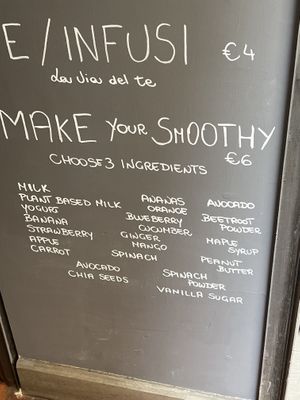 E / INFUSI €4
La via del te
MAKE YOUR SMOOTHY
€6
CHOOSE 3 INGREDIENTS
MILK
PLANT BASED MILK
YOGURT
BANANA
STRAWBERRY
APPLE
CARROT
ANANAS
ORANGE
BLUEBERRY
CUCUMBER
GINGER
MANGO
SPINACH
AVOCADO
BEETROOT
POWDER
MAPLE
SYRUP
PEANUT
BUTTER
AVOCADO
CHIA SEEDS
SPINACH
POWDER
VANILLA SUGAR